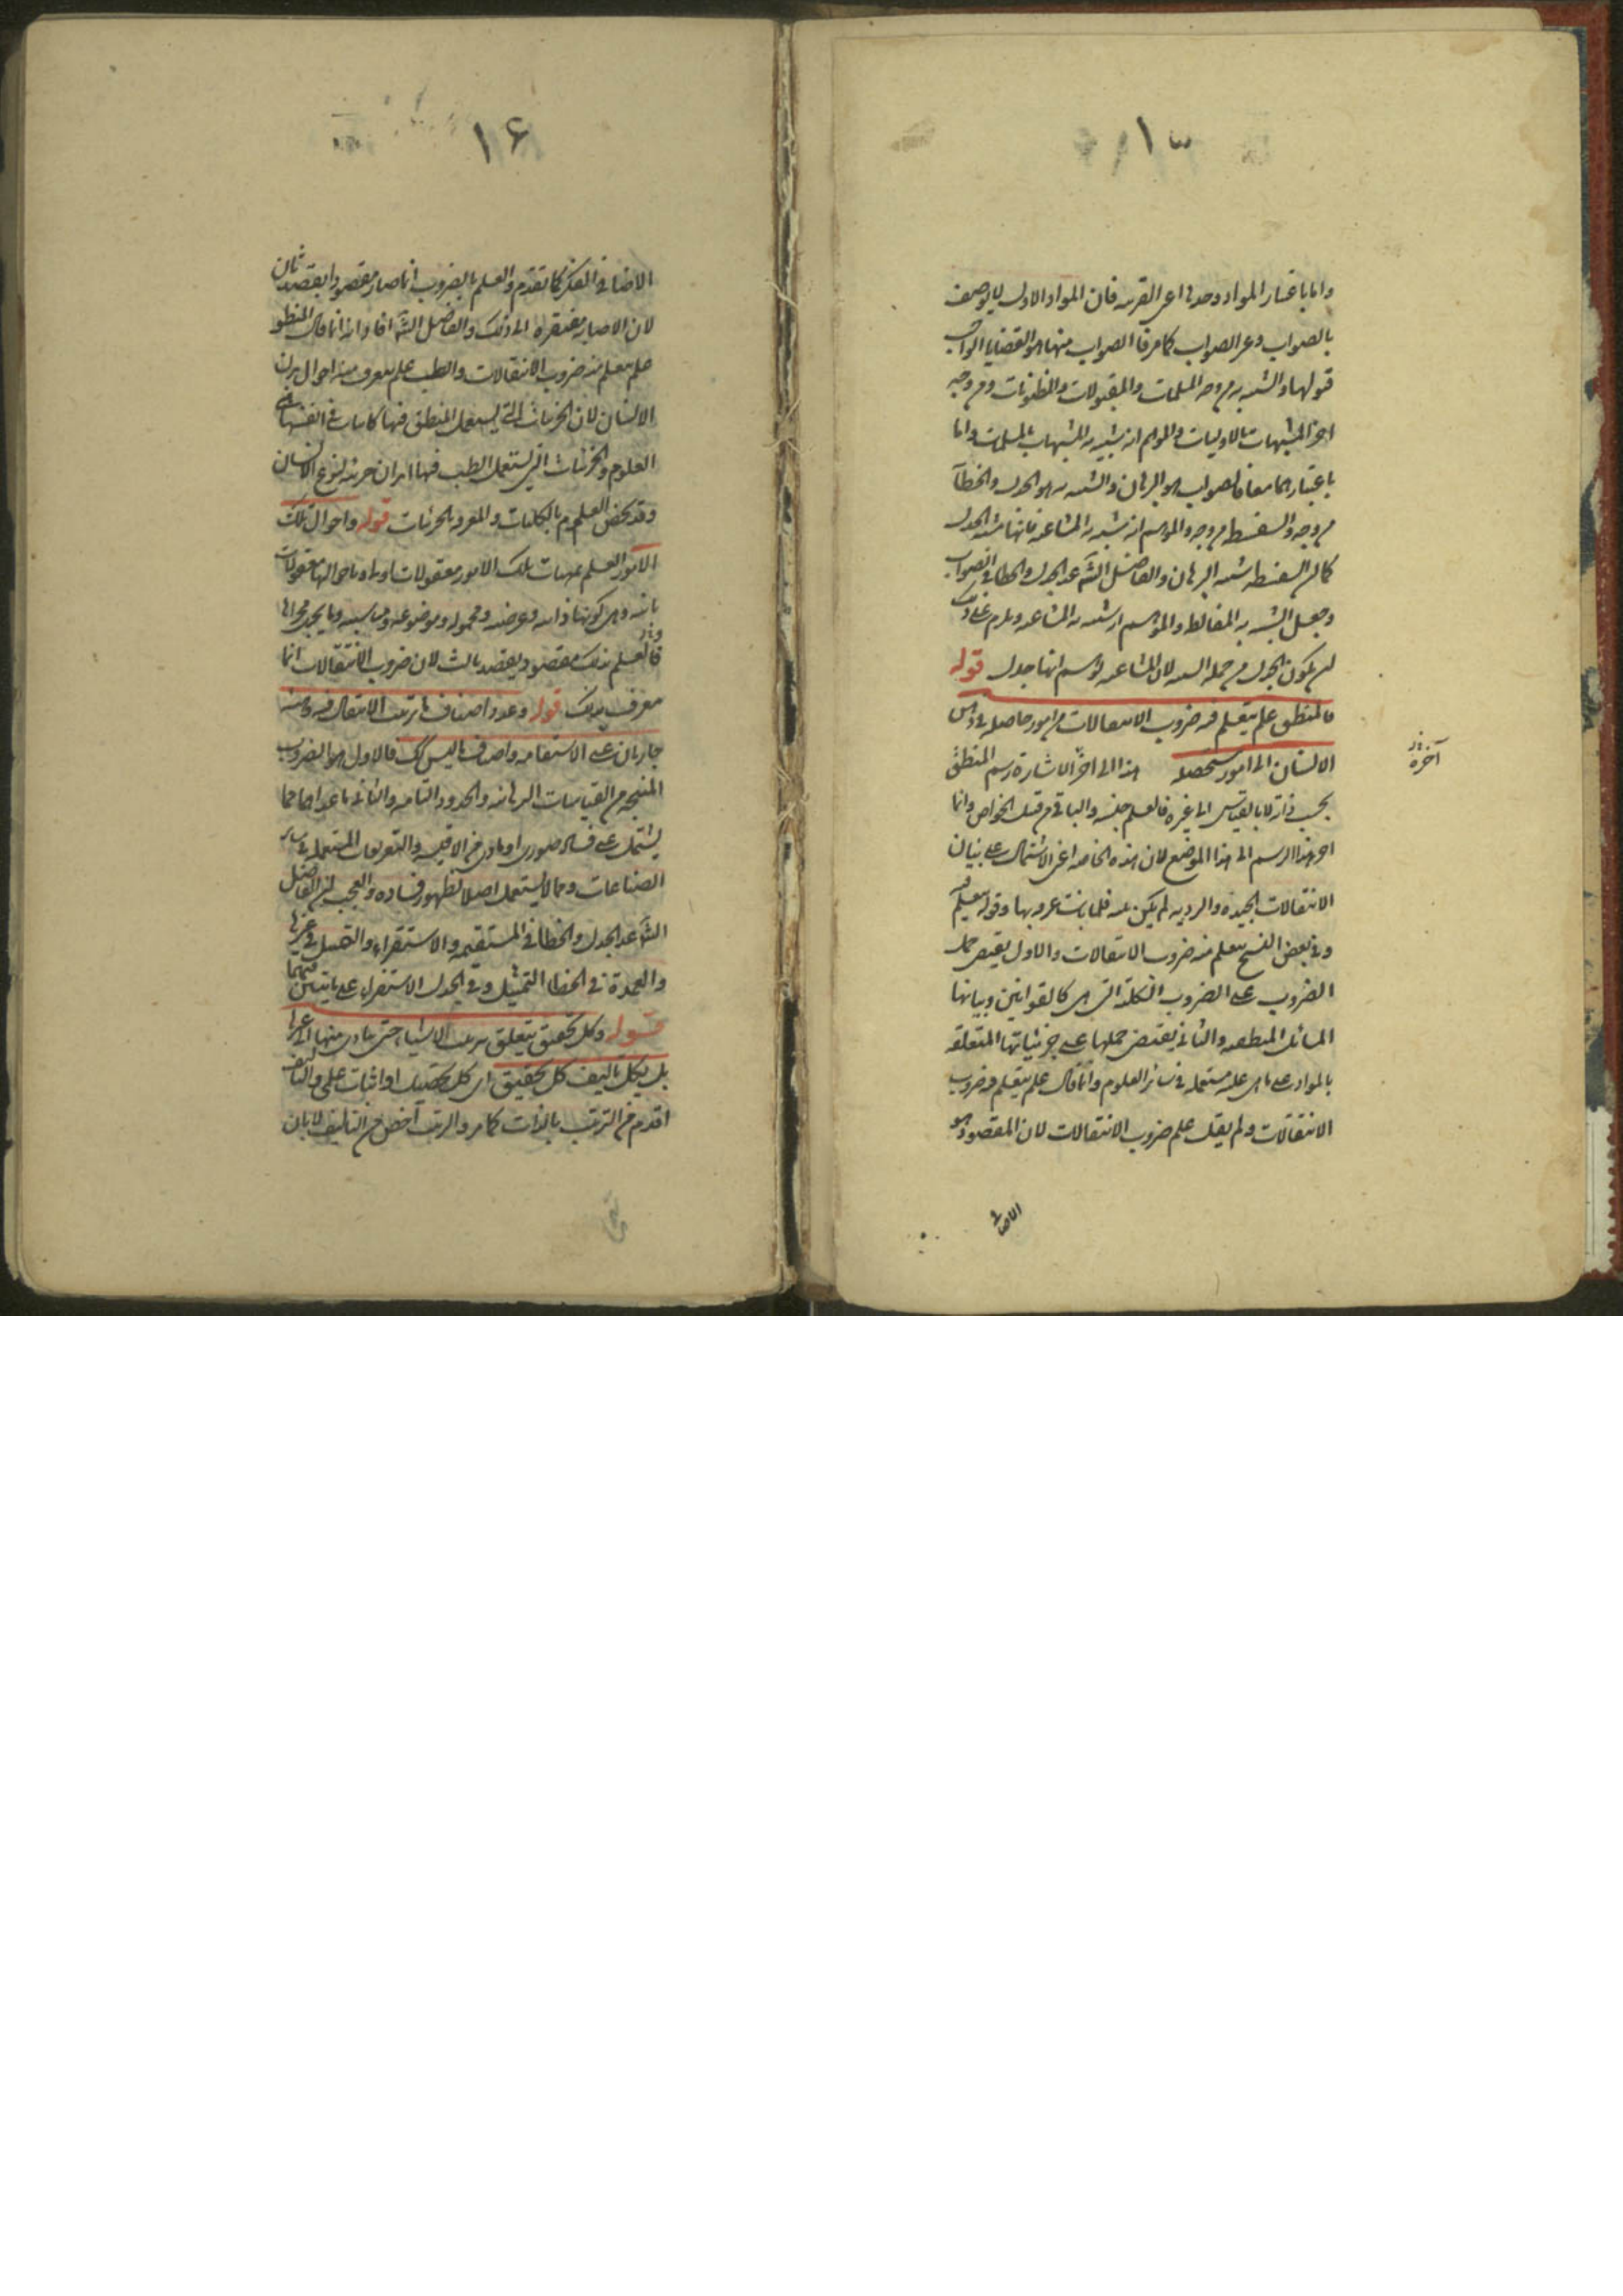 ١٥
واما باعتبار المواد وحدها اعنى القريبه فان المواد الاول لا يوصف
بالصواب وغير الصواب كما مر فالصواب منها هو القضايا الواجب
قبولها والشبيه به من وجه المسلمات والمقبولات والمظنونات ومن وجه
اخر المشبهات بالاوليات والموهم انه شبيه به المشبهات بالمسلمات واما
باعتبارهما معا فالصواب هو البرهان والشبيه به هو الجدل والخطابة
من وجه والسفسطه من وجه والموهم انه شبيه به المشاغبه فانها تشبه الجدل
كما ان السفسطه تشبه البرهان والفاضل الشه عد الجدل والخطابه فى الصواب
وجعل الشبيه به المغالطه والموهم انه شبيه به المشاغبه ويلزم على ذلك
ان يكون الجدل من جمله الشبيه لان المشاغبه توهم انها جدل قوله
فالمنطق علم يتعلم فيه ضروب الانتقالات من امور حاصله فى ذهن
الانسان الى امور مستحصله هذا الى اخر الاشارة رسم المنطق
آخره
بحسب ذاته لا بالقياس الى غيره فالعلم جنسه والباقى من قبيل الخواص وانما
اخر هذا الرسم الى هذا الموضع لان هذه الخاصه اعنى الاشتمال على بيان
الانتقالات الجيده والرديه لم يكن بينه فلما بانت عرف بها وقوله يتعلم فيه
وفى بعض النسخ يتعلم منه ضروب الانتقالات والاول يقتضى حمل
الضروب على الضروب الكلية التى هى كالقوانين وبيانها
المسائل المنطقيه والثانى يقتضى حملها على جزئياتها المتعلقه
بالمواد على ما هى عليه مستعمله فى سائر العلوم وانما قال علم يتعلم فيه ضروب
الانتقالات ولم يقل علم ضروب الانتقالات لان المقصود هو
الاصابه
١۶
الاصابة فى الفكر كما تقدم والعلم بالضروب انما صار مقصودا بقصد ثان
لان الاصابه مفتقره الى ذلك والفاضل الشه افاد انه انما قال المنطق
علم يتعلم منه ضروب الانتقالات والطب علم يتعرف منه احوال بدن
الانسان لان الجزئيات التى يستعمل المنطق فيها كليات فى انفسها هى
العلوم والجزئيات التى يستعمل الطب فيها ابدان جزئيه لنوع الانسان
وقد يخص العلم بالكليات والمعرفه بالجزئيات قوله واحوال تلك
الامور العلم بمهيات تلك الامور معقولات اولى وباحوالها معقولات
ثانيه وهى كونها ذاتيه وعرضيه ومحموله وموضوعه ومتناسبه وما يجرى مجراها
فالعلم بذلك مقصود بقصد ثالث لان ضروب الانتقالات انما
يعرف بذلك قوله وعدد اصناف ما ترتيب الانتقال فيه وهيئته
جاريان على الاستقامه واصناف ما ليس كك فالاول هو الضروب
المنتجه من القياسات البرهانيه والحدود التامه والثانى ما عداها مما
يشتمل على فساد صورى او مادى من الاقيسه والتعريفات المستعمله فى سائر
الصناعات ومما لا يستعمل اصلا لظهور فساده والعجب ان الفاضل
الشه عد الجدل والخطابه فى المستقيمه والاستقراء والتمثيل فى غيرها
والعمدة فى الخطابة التمثيل وفى الجدل الاستقراء على ما يتبين فيهما
قوله وكل تحقيق يتعلق بترتيب الاشياء حتى يتادى منها الى غيرها
بل بكل تاليف كل تحقيق اى كل تحصيل او اثبات علمى والتاليف
اقدم من الترتيب بالذات كما مر والترتيب اخص من التاليف لا بان